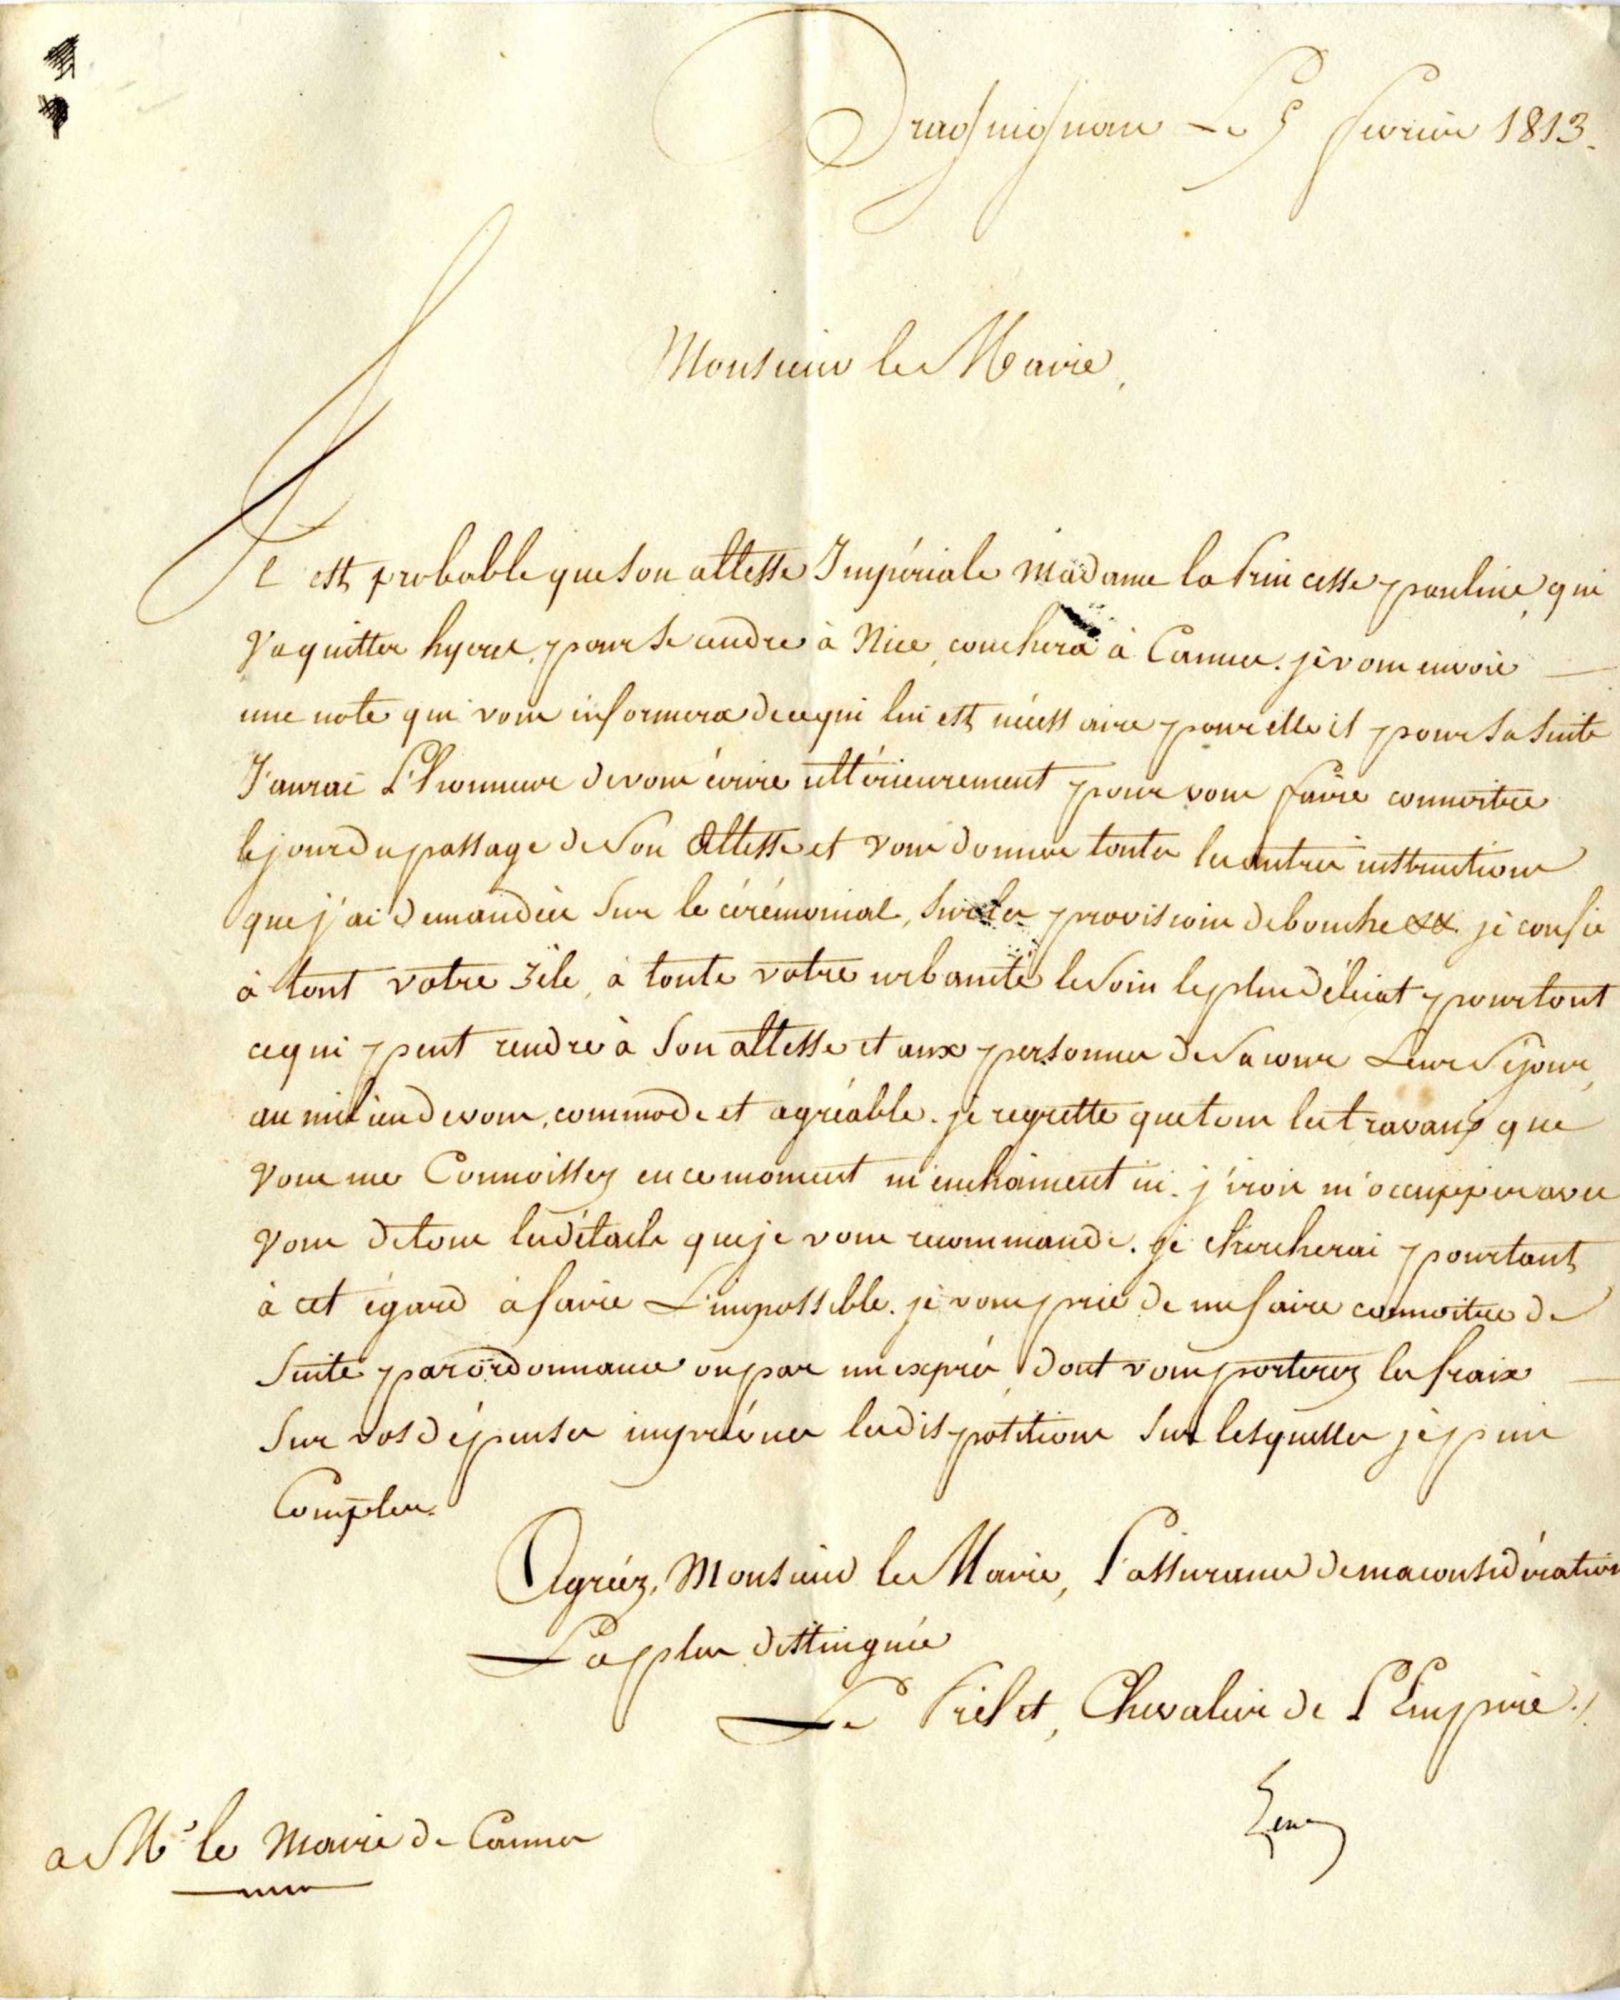 Draguignan Le 5 fevrier 1813.
Monsieur le Maire,
Il est probable que son altesse Impériale Madame la Princesse pauline, qui
va quitter hyeres, pour se rendre à Nice, couchera à Cannes. je vous envoie
une note qui vous informera de ce qui lui est nécessaire pour elle et pour sa suite
J'aurai L'honneur de vous écrire ultérieurement pour vous faire connoitre
le jour du passage de Son Altesse et vous donner toutes les autres instructions
que j'ai demandées sur le cérémonial, sur les provisions de bouche &&. je confie
à tout votre zèle, à toute votre urbanité le soin le plus délicat pour tout
ce qui peut rendre à Son altesse et aux personnes de Sa cour Leur Séjour,
au milieu de vous, commode et agréable. je regrette que tous les travaux que
vous me Connoissez en ce moment m'enchainent ici. j'irois m'occupper avec
vous de tous les détails que je vous recommande. je chercherai pourtant
à cet égard à faire L'impossible. je vous prie de me faire connoitre de
suite par ordonnance ou par un exprès, dont vous porterez les fraix
sur vos dépenses imprévues les dispositions sur lesquelles je puis
Compter.
Agréez, Monsieur le Maire, l'assurance de ma considération
La plus distinguée
Le Préfet, Chevalier de L'Empire.
a Mr le Maire de Cannes